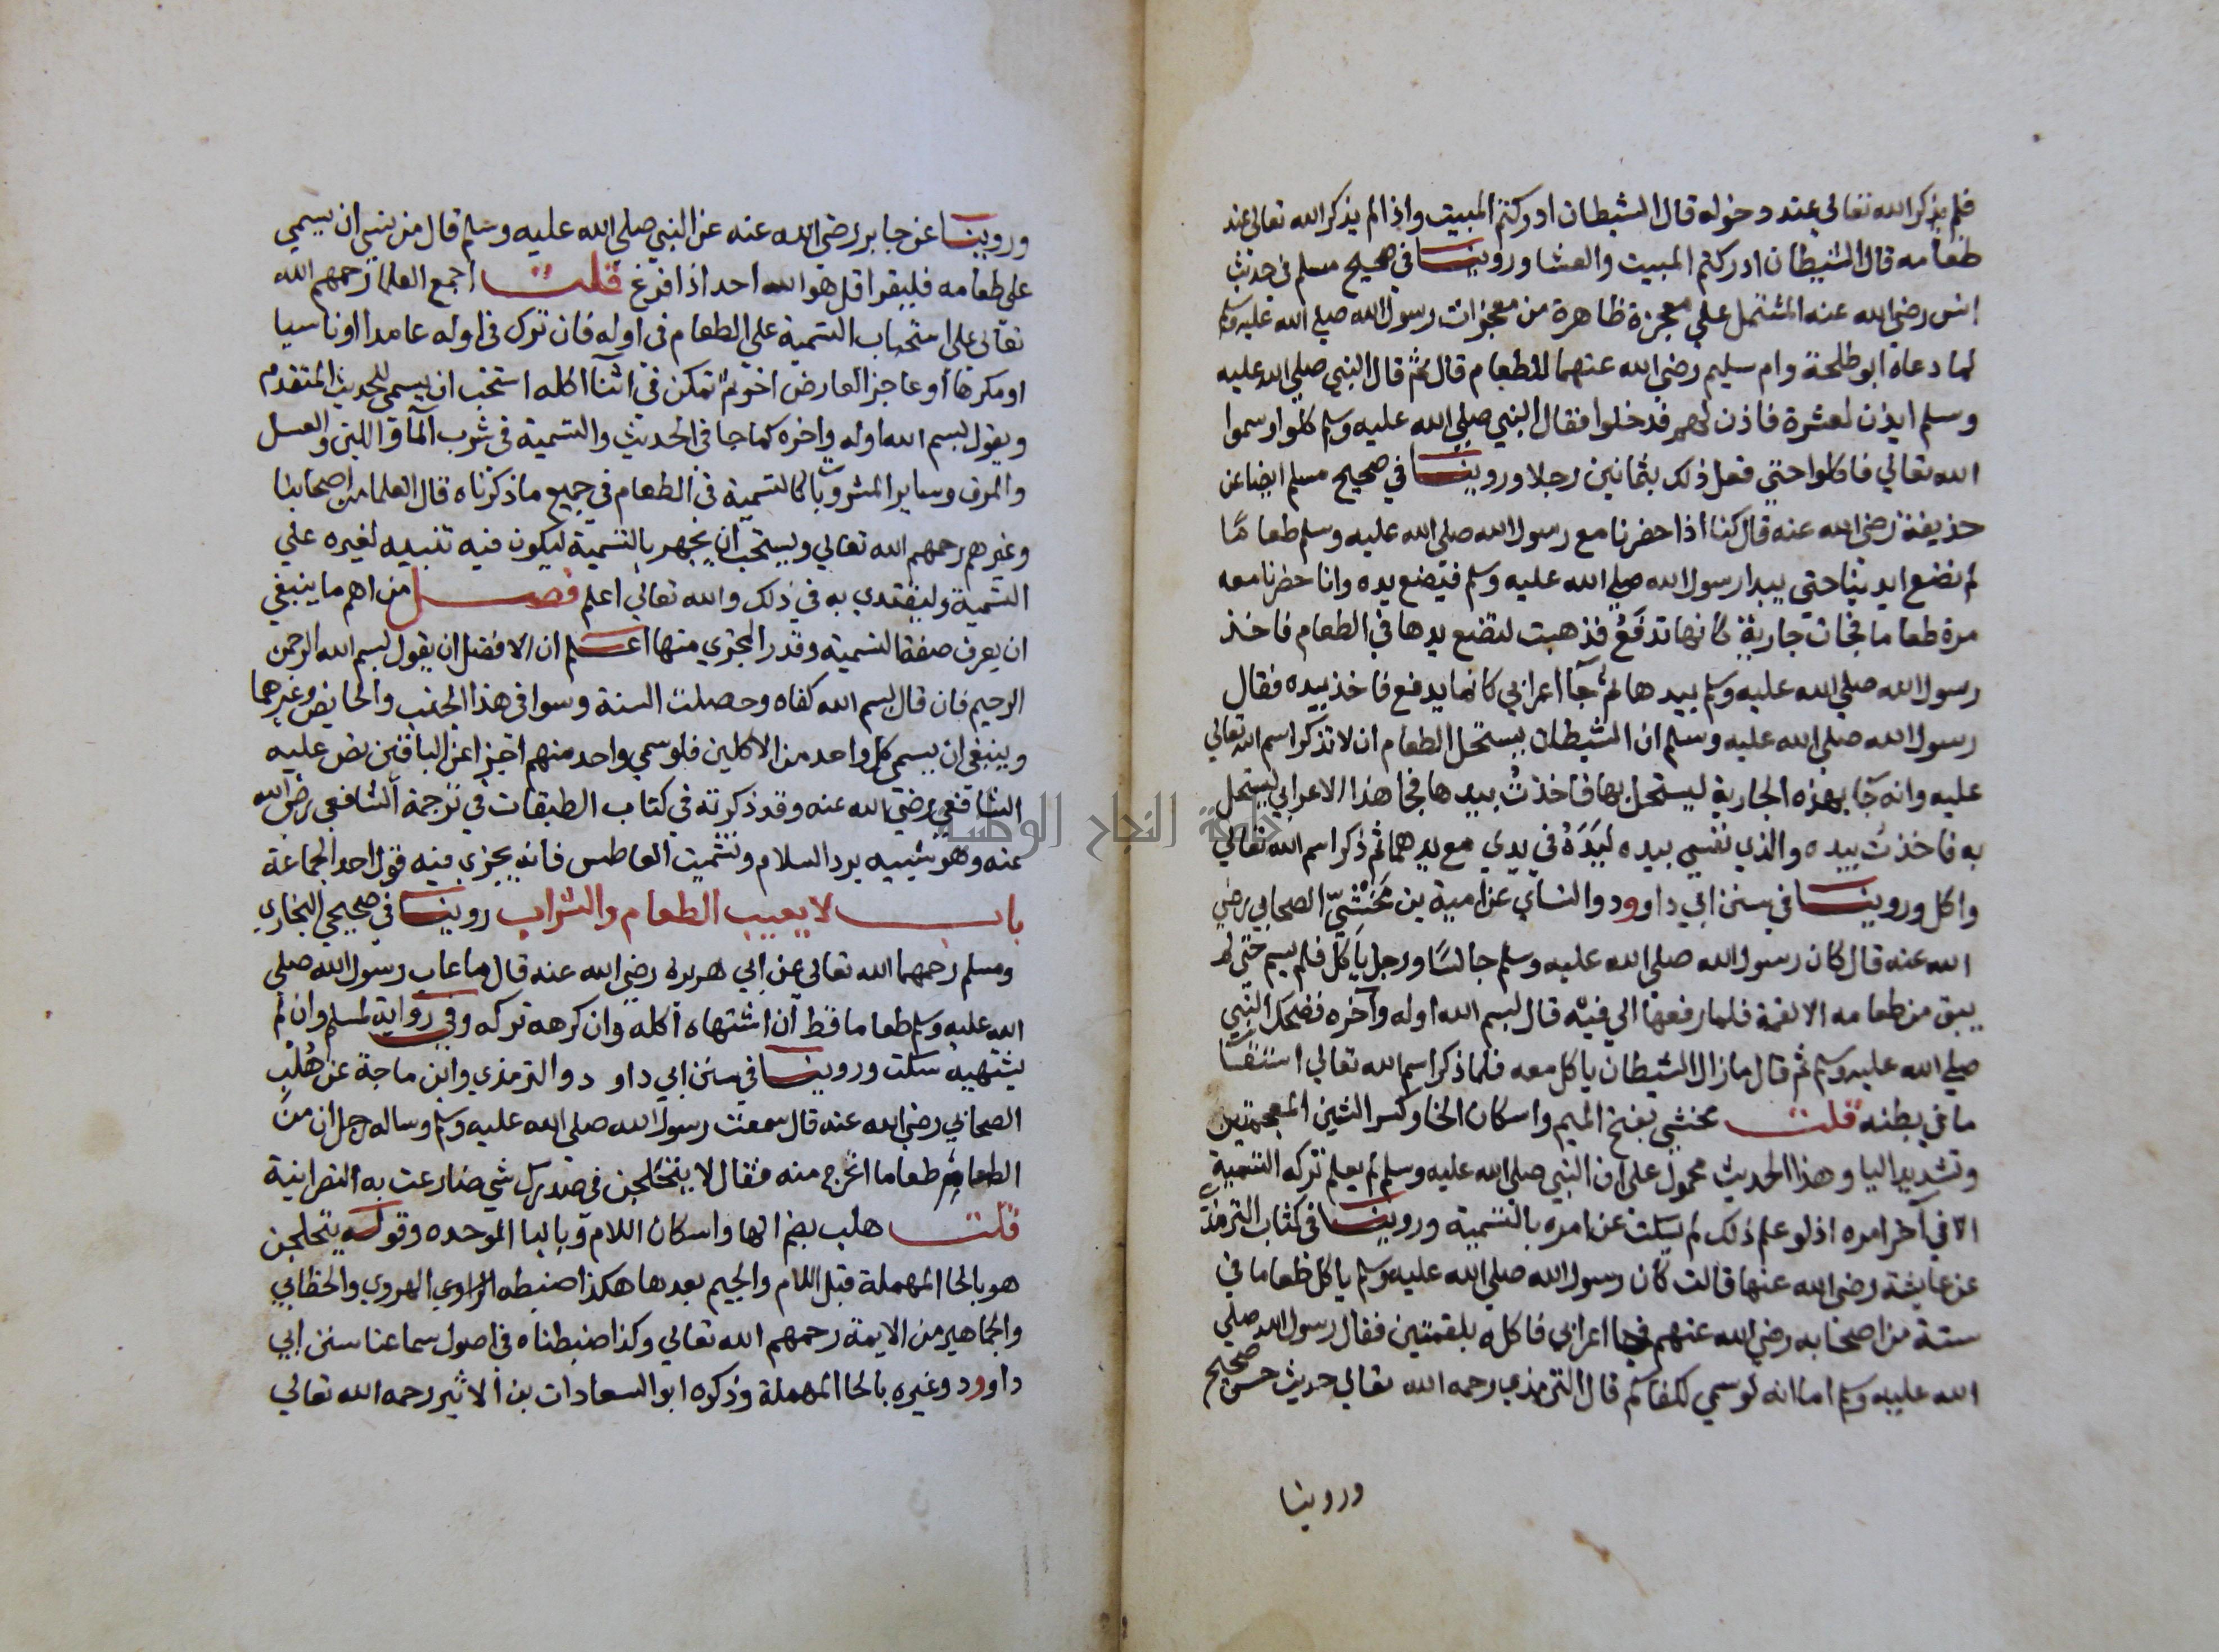 فلم يذكر الله تعالي عند دخوله قال الشيطان ادركتم المبيت واذا لم يذكر الله تعالي عند
طعامه قال الشيطان ادركتم المبيت والعشا وروينا في صحيح مسلم في حديث
انس رضي الله عنه المشتمل علي معجزة ظاهرة من معجزات رسول الله صلي الله عليه وسلم
لما دعاه ابو طلحة وام سليم رضي الله عنهما للطعام قال ثم قال النبي صلي الله عليه
وسلم ايذن لعشرة فاذن لهم فدخلوا فقال النبي صلي الله عليه وسلم كلوا وسموا
الله تعالي فاكلوا حتي فعل ذلك بثمانين رجلا وروينا في صحيح مسلم ايضا عن
حذيفة رضي الله عنه قال كنا اذا حضرنا مع رسول الله صلي الله عليه وسلم طعاما
لم نضع ايدينا حتي يبدا رسول الله صلي الله عليه وسلم فيضع يده وانا حضرنا معه
مرة طعاما فجات جارية كانها تدفع فذهبت لتضع يدها في الطعام فاخذ
رسول الله صلي الله عليه وسلم بيدها ثم جآ اعرابي كانما يدفع فاخذ بيده فقال
رسول الله صلي الله عليه وسلم ان الشيطان يستحل الطعام ان لا تذكر اسم الله تعالي
عليه وانه جآ بهذه الجارية ليستحل بها فاخذتُ بيدها فجا هذا الاعرابي ليستحل
به فاخذت بيده والذي نفسي بيده ليَدَهُ في يدي مع يدهما ثم ذكر اسم الله تعالي
واكل وروينا في سنن ابي داوود والنساي عن امية بن مَخْشِيّ الصحابي رضي
الله عنه قال كان رسول الله صلي الله عليه وسلم جالسًا ورجل ياكل فلم يسم حتي لم
يبق من طعامه الا لقمة فلما رفعها الي فيه قال بسم الله اوله وآخره فضحك النبي
صلي الله عليه وسلم ثم قال ما زال الشيطان ياكل معه فلما ذكر اسم الله تعالي استقا
ما في بطنه قلت مخشي بفتح الميم واسكان الخا وكسر الشين المعجمتين
وتشديد اليا وهذا الحديث محمول علي ان النبي صلي الله عليه وسلم لم يعلم تركه التسمية
الا في آخر امره اذ لو علم ذلك لم يسكت عن امره بالتسمية وروينا في كتاب الترمذي
عن عايشة رضي الله عنها قالت كان رسول الله صلي الله عليه وسلم ياكل طعاما في
ستة من اصحابه رضي الله عنهم فجا اعرابي فاكله بلقمتين فقال رسول الله صلي
الله عليه وسلم اما انه لو سمي لكفاكم قال الترمذي رحمه الله تعالي حديث حسن صحيح
وروينا
وروينا عن جابر رضي الله عنه عن النبي صلي الله عليه وسلم قال من نسي ان يسمي
علي طعامه فليقرا قل هو الله احد اذا فرغ قلت اجمع العلما رحمهم الله
تعالي علي استحباب التسمية علي الطعام في اوله فان ترك في اوله عامدا او ناسيا
او مكرها او عاجزا لعارض اخر ثم تمكن في اثنآ اكله استحب ان يسمي للحديث المتقدم
ويقول بسم الله اوله واخره كما جا في الحديث والتسمية في شرب المآ واللبن والعسل
والمرق وساير المشروبات كالتسمية في الطعام في جميع ما ذكرناه قال العلما من اصحابنا
وغيرهم رحمهم الله تعالي ويستحب ان يجهر بالتسمية ليكون فيه تنبيه لغيره علي
التسمية وليقتدي به في ذلك والله تعالي اعلم فصل من اهم ما ينبغي
ان يعرف صفة التسمية وقدر المجزي منها اعلم ان الافضل ان يقول بسم الله الرحمن
الرحيم فان قال بسم الله كفاه وحصلت السنة وسوا في هذا الجنب والحايض وغيرهما
وينبغي ان يسمي كل واحد من الاكلين فلو سمي واحد منهم اجزا عن الباقين نص عليه
الشافعي رضي الله عنه وقد ذكرته في كتاب الطبقات في ترجمة الشافعي رضي الله
عنه وهو شبيه برد السلام وتشميت العاطس فانه يجزي فيه قول احد الجماعة
باب لا يعيب الطعام والشراب روينا في صحيحي البخاري
ومسلم رحمهما الله تعالي عن ابي هريرة رضي الله عنه قال ما عاب رسول الله صلي
الله عليه وسلم طعاما قط ان اشتهاه اكله وان كرهه تركه وفي رواية لمسلم وان لم
يشتهيه سكت وروينا في سنن ابي داود والترمذي وابن ماجة عن هُلْب
الصحابي رضي الله عنه قال سمعت رسول الله صلي الله عليه وسلم وساله رجل ان من
الطعام طعاما اتحرج منه فقال لا يتحلجن في صدرك شي ضارعت به النصرانية
قلت هلب بضم الها واسكان اللام وبالبا الموحده وقوله يتحلجن
هو بالحا المهملة قبل اللام والجيم بعدها هكذا ضبطه الراوي الهروي والخطابي
والجماهير من الايمة رحمهم الله تعالي وكذا ضبطناه في اصول سماعنا سنن ابي
داوود وغيره بالحا المهملة وذكره ابو السعادات بن الاثير رحمه الله تعالي
جامعة النجاح الوطنية